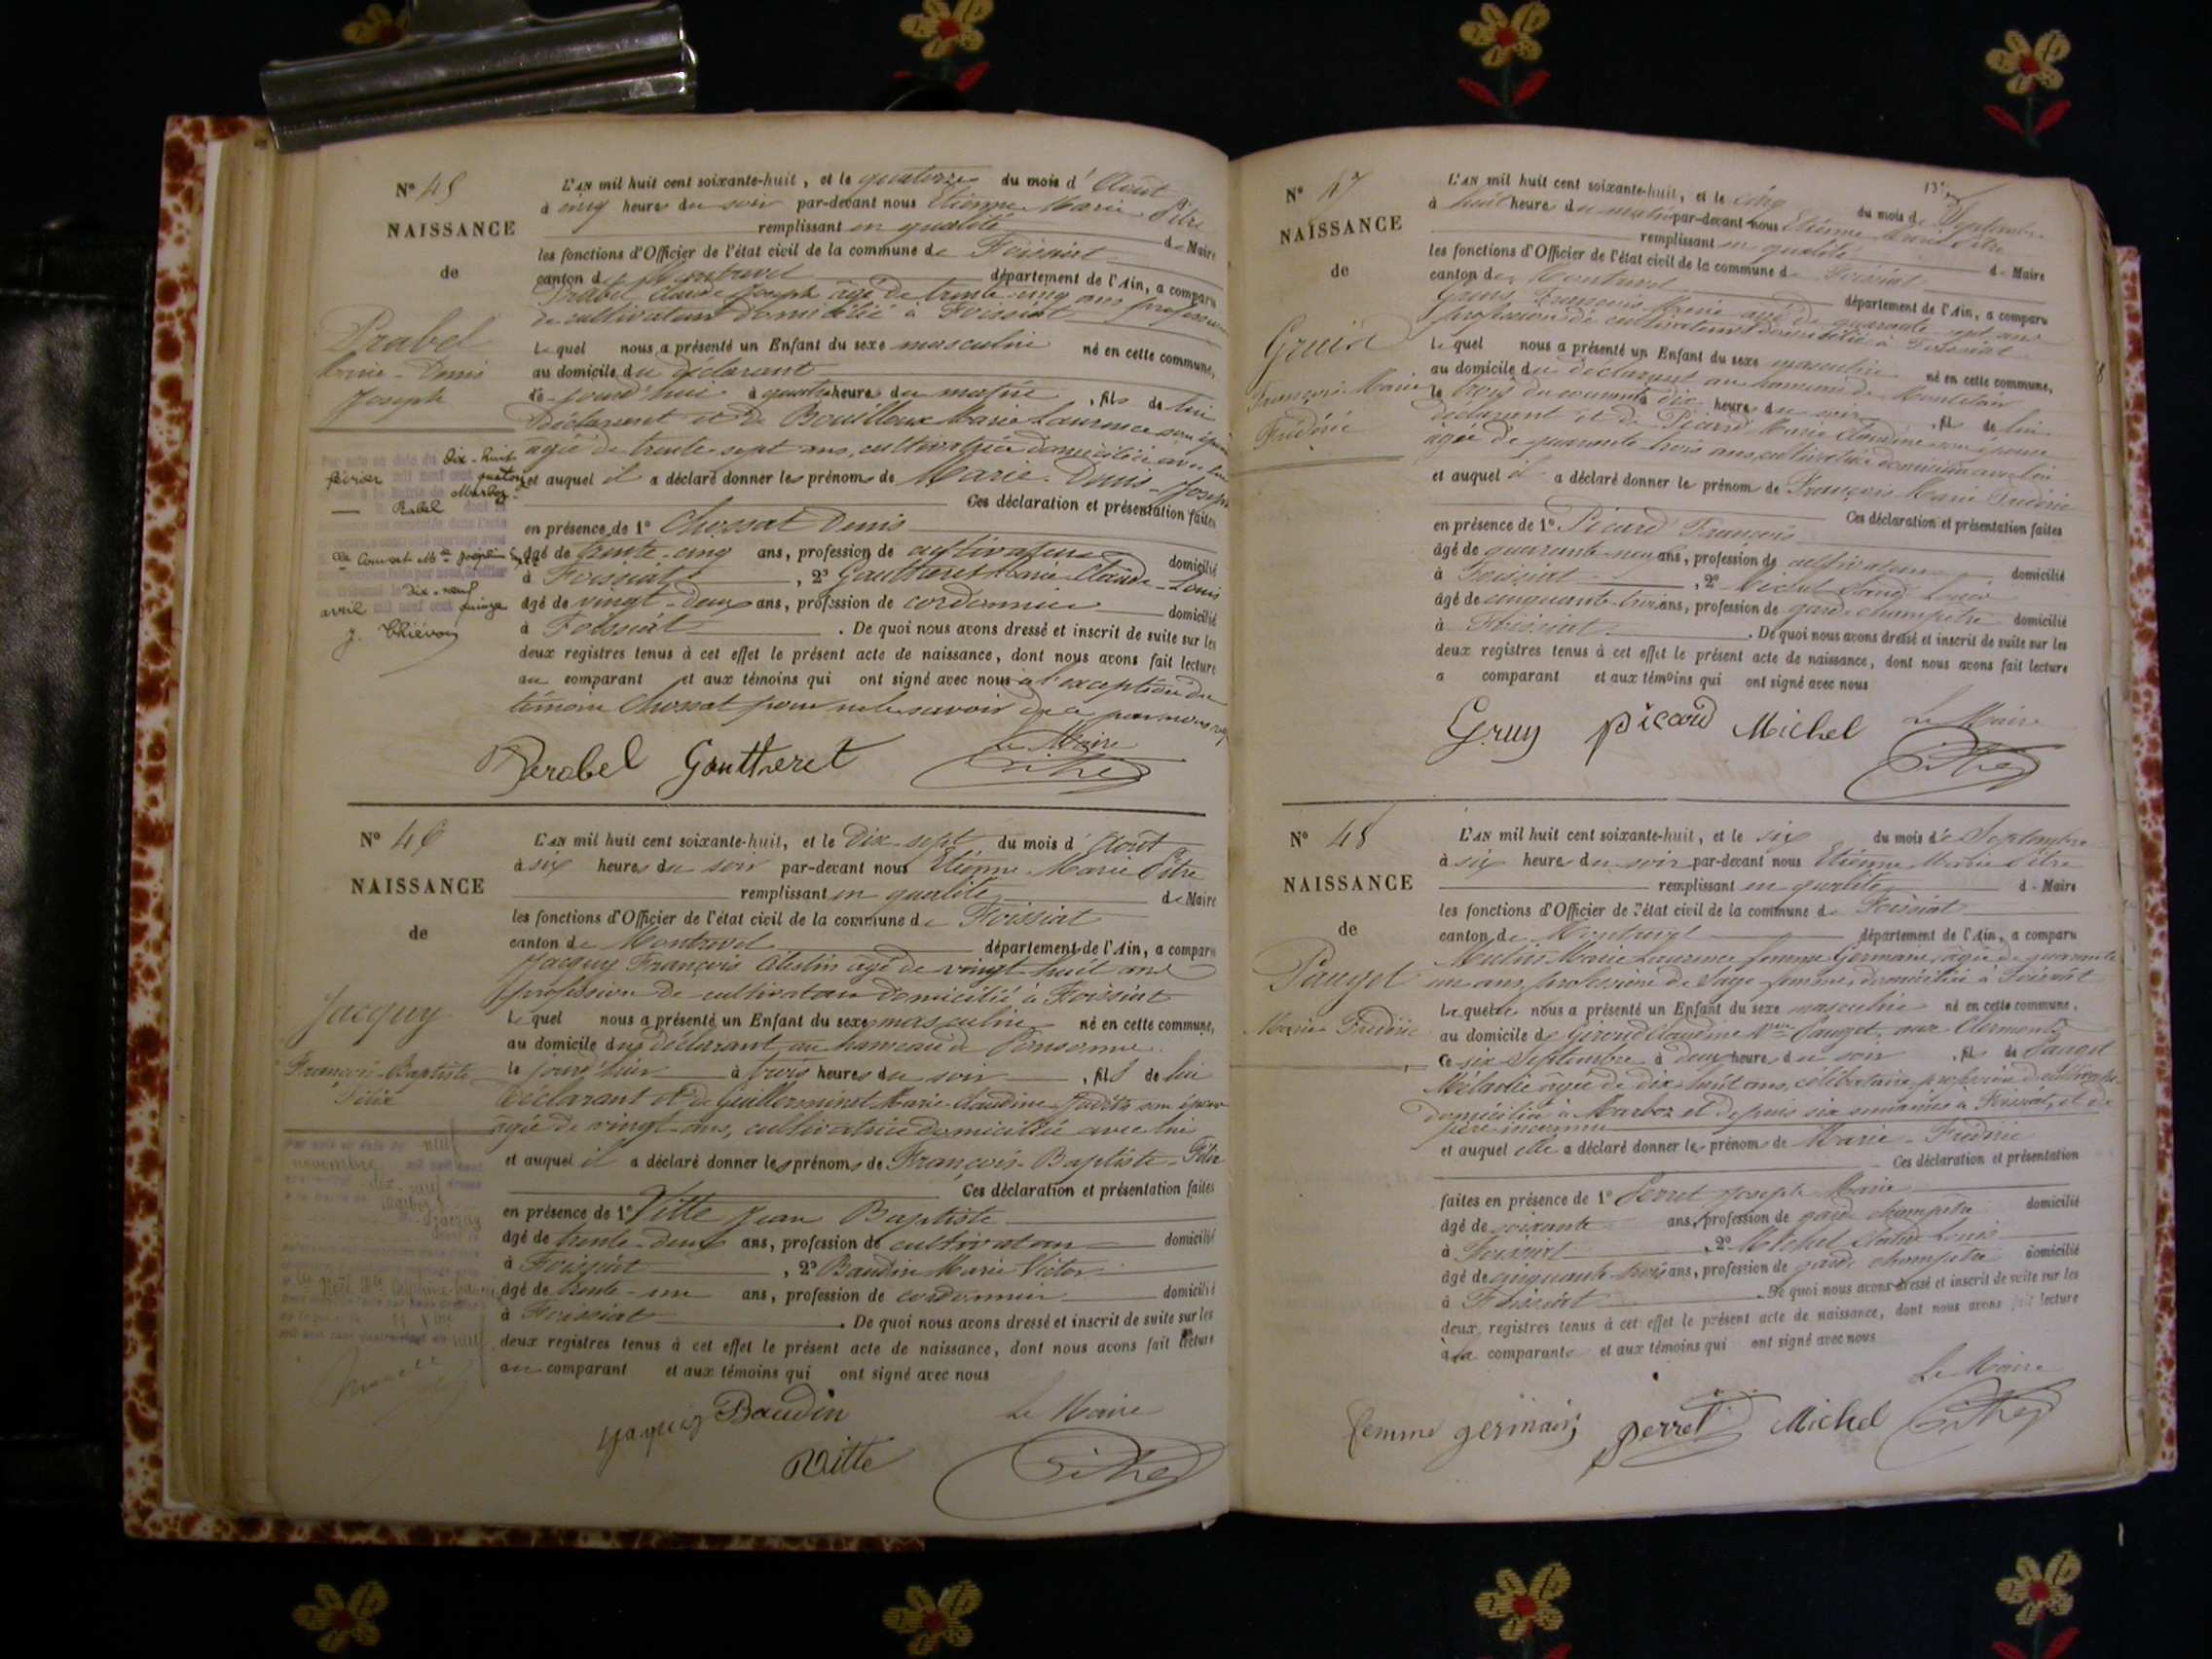 N° 45
NAISSANCE
de
Prabel
Marie-Denis
Joseph
L'AN mil huit cent soixante-huit, et le quatorze du mois d' Août
à cinq heures du soir par-devant nous Etienne Marie Pitre
remplissant en qualité de Maire
les fonctions d'Officier de l'état civil de la commune de Foissiat
canton de Montrevel département de l'Ain, a comparu
Prabel Claude Joseph âgé de trente-cinq ans profession
de cultivateur domicilié à Foissiat
Lequel nous a présenté un Enfant du sexe masculin né en cette commune,
au domicile du déclarant
ce jourd'hui à quatre heures du matin, fils de lui
Déclarant et de Bouilloux Marie Laurence son épouse
agée de trente-sept ans, cultivatrice domiciliée avec lui
et auquel il a déclaré donner les prénoms de Marie-Denis-Joseph
Ces déclaration et présentation faites
en présence de 1° Chossat Denis
âgé de trente-cinq ans, profession de cultivateur domicilié
à Foissiat, 2° Gautheret Marie Claude-Louis
âgé de vingt-deux ans, profession de cordonnier domicilié
à Foissiat. De quoi nous avons dressé et inscrit de suite sur les
deux registres tenus à cet effet le présent acte de naissance, dont nous avons fait lecture
au comparant et aux témoins qui ont signé avec nous à l'exception du
témoin Chossat pour ne le savoir de ce par nous
Perabel Gautheret Le Maire
Pitre
dix-huit
février mil neuf cent quatorze
Marboz
Prabel
avril dix-neuf mil neuf cent quinze
J. Thiévon
N° 46
NAISSANCE
de
Jacquy
François-Baptiste
Félix
L'AN mil huit cent soixante-huit, et le Dix sept du mois d' Août
à six heures du soir par-devant nous Etienne Marie Pitre
remplissant en qualité de Maire
les fonctions d'Officier de l'état civil de la commune de Foissiat
canton de Montrevel département de l'Ain, a comparu
Jacquy François Célestin âgé de vingt-huit ans
profession de cultivateur domicilié à Foissiat
Lequel nous a présenté un Enfant du sexe masculin né en cette commune,
au domicile du déclarant au hameau de
le jourd'hui à trois heures du soir, fils de lui
Déclarant et de Guillerminet Marie-Claudine son épouse
agée de vingt ans, cultivatrice domiciliée avec lui
et auquel il a déclaré donner les prénoms de François-Baptiste-Félix
Ces déclaration et présentation faites
en présence de 1° Vitte Jean Baptiste
âgé de trente-deux ans, profession de cultivateur domicilié
à Foissiat, 2° Baudin Marie Victor
âgé de trente-un ans, profession de cordonnier domicilié
à Foissiat. De quoi nous avons dressé et inscrit de suite sur les
deux registres tenus à cet effet le présent acte de naissance, dont nous avons fait lecture
au comparant et aux témoins qui ont signé avec nous
Baudin Le Maire
Vitte Pitre
neuf
novembre
dix-neuf
Marboz
Jacquy
N° 47
NAISSANCE
de
François-Marie
Frédéric
L'AN mil huit cent soixante-huit, et le cinq du mois de Septembre
à huit heures du matin par-devant nous Etienne Marie Pitre
remplissant en qualité de Maire
les fonctions d'Officier de l'état civil de la commune de Foissiat
canton de Montrevel département de l'Ain, a comparu
François Marie âgé de quarante-sept ans
profession de cultivateur domicilié à Foissiat
Lequel nous a présenté un Enfant du sexe masculin né en cette commune,
au domicile du déclarant au hameau de
le trois du courant à dix heures du soir, fils de lui
déclarant et de Picard Marie Claudine son épouse
agée de quarante trois ans, cultivatrice domiciliée avec lui
et auquel il a déclaré donner les prénom de François Marie Frédéric
Ces déclaration et présentation faites
en présence de 1° Picard François
âgé de quarante-neuf ans, profession de cultivateur domicilié
à Foissiat, 2° Michel Claude Louis
âgé de cinquante-trois ans, profession de garde champêtre domicilié
à Foissiat. De quoi nous avons dressé et inscrit de suite sur les
deux registres tenus à cet effet le présent acte de naissance, dont nous avons fait lecture
a comparant et aux témoins qui ont signé avec nous
Gruy picard Michel Le Maire
Pitre
N° 48
NAISSANCE
de
Pauget
Marie Frédéric
L'AN mil huit cent soixante-huit, et le six du mois de Septembre
à six heures du soir par-devant nous Etienne Marie Pitre
remplissant en qualité de Maire
les fonctions d'Officier de l'état civil de la commune de Foissiat
canton de Montrevel département de l'Ain, a comparu
Marie Laurence femme Germain, agée de quarante
un ans, profession de Sage-femme, domiciliée à Foissiat
Laquelle nous a présenté un Enfant du sexe masculin né en cette commune,
au domicile de Giroud Claudine Pauget, aux Clermonts
ce six Septembre à deux heures du soir, fils de Pauget
Mélanie âgée de dix huit ans, célibataire, profession de
domiciliée à Marboz et depuis six semaines à Foissiat, et de
père inconnu
et auquel elle a déclaré donner les prénoms de Marie-Frédéric
Ces déclaration et présentation
faites en présence de 1° Perret Joseph Marie
âgé de soixante ans, profession de garde champêtre domicilié
à Foissiat, 2° Michel Claude Louis
âgé de cinquante-trois ans, profession de garde champêtre domicilié
à Foissiat. De quoi nous avons dressé et inscrit de suite sur les
deux registres tenus à cet effet le présent acte de naissance, dont nous avons fait lecture
à la comparante et aux témoins qui ont signé avec nous
Le Maire
femme germain perret Michel Pitre